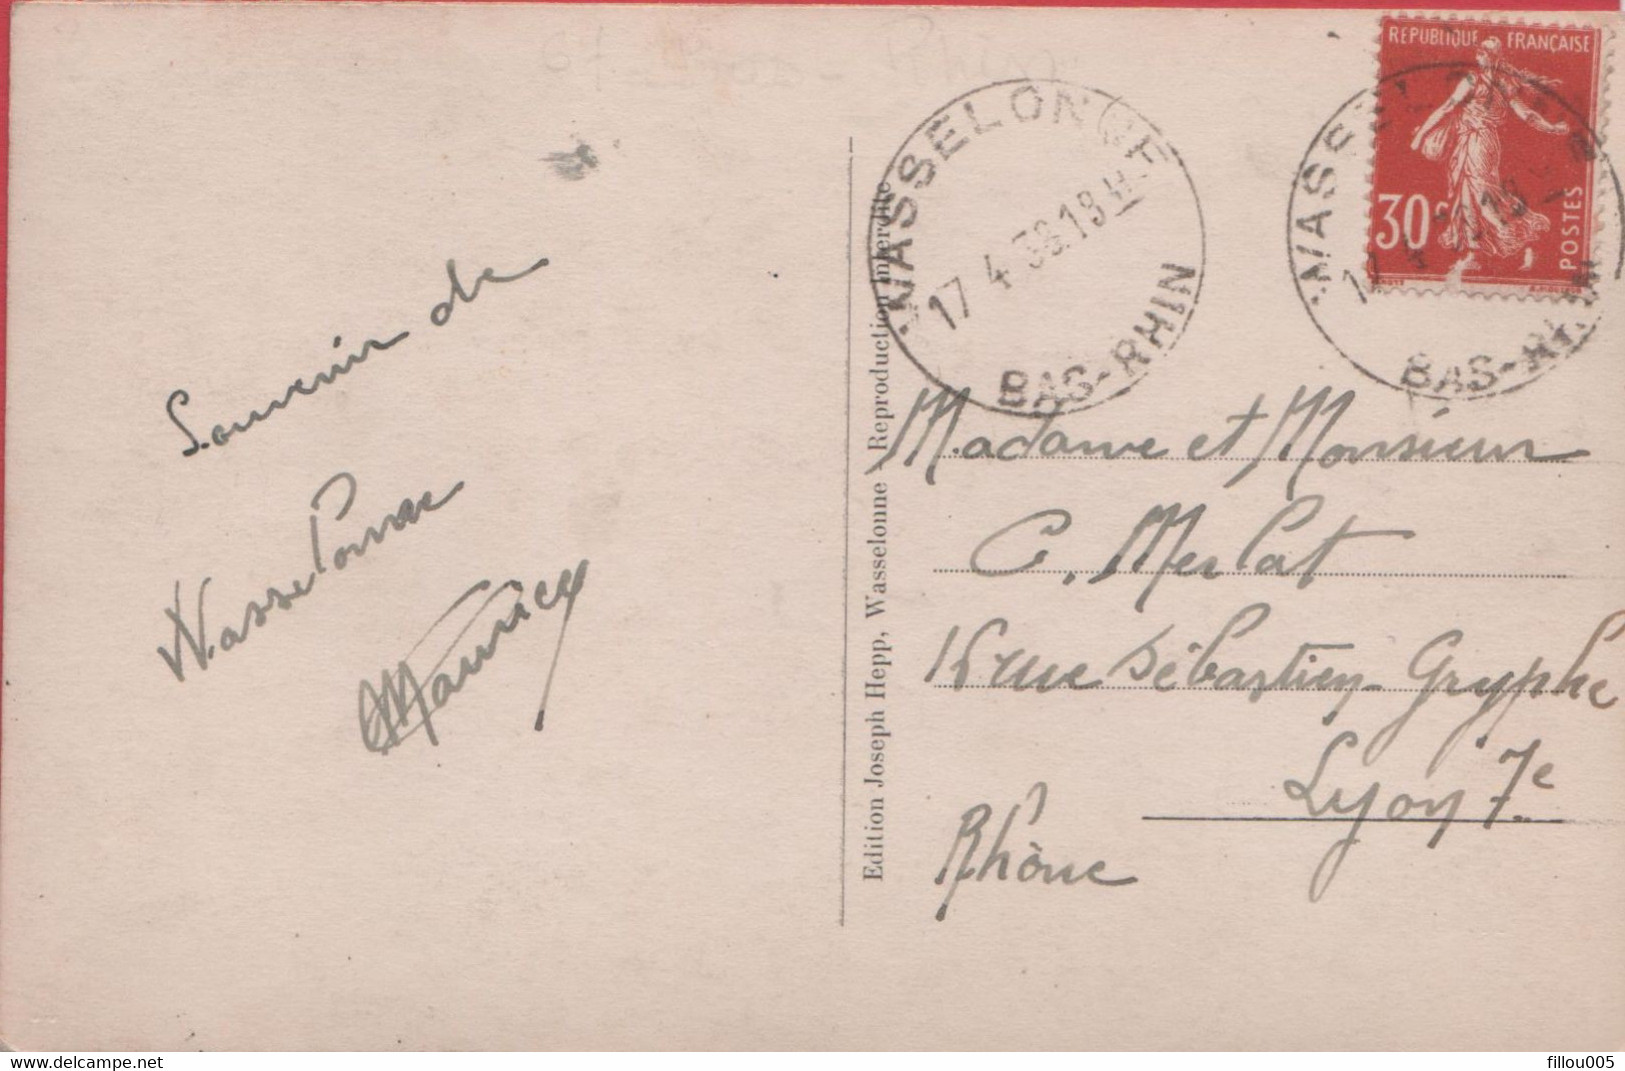 67 - Rhin
Souvenir de
Wasselonne
Maurice
Edition Joseph Hepp, Wasselonne Reproduction interdite
WASSELONNE
17 4.38.18 H
BAS-RHIN
REPUBLIQUE FRANÇAISE
30c
POSTES
WASSELONNE
17 4 18
BAS-RHIN
Madame et Monsieur
C. Merlat
15 rue Sébastien-Gryphe
Lyon 7e
Rhône
https://www.delcampe.net
fillou005